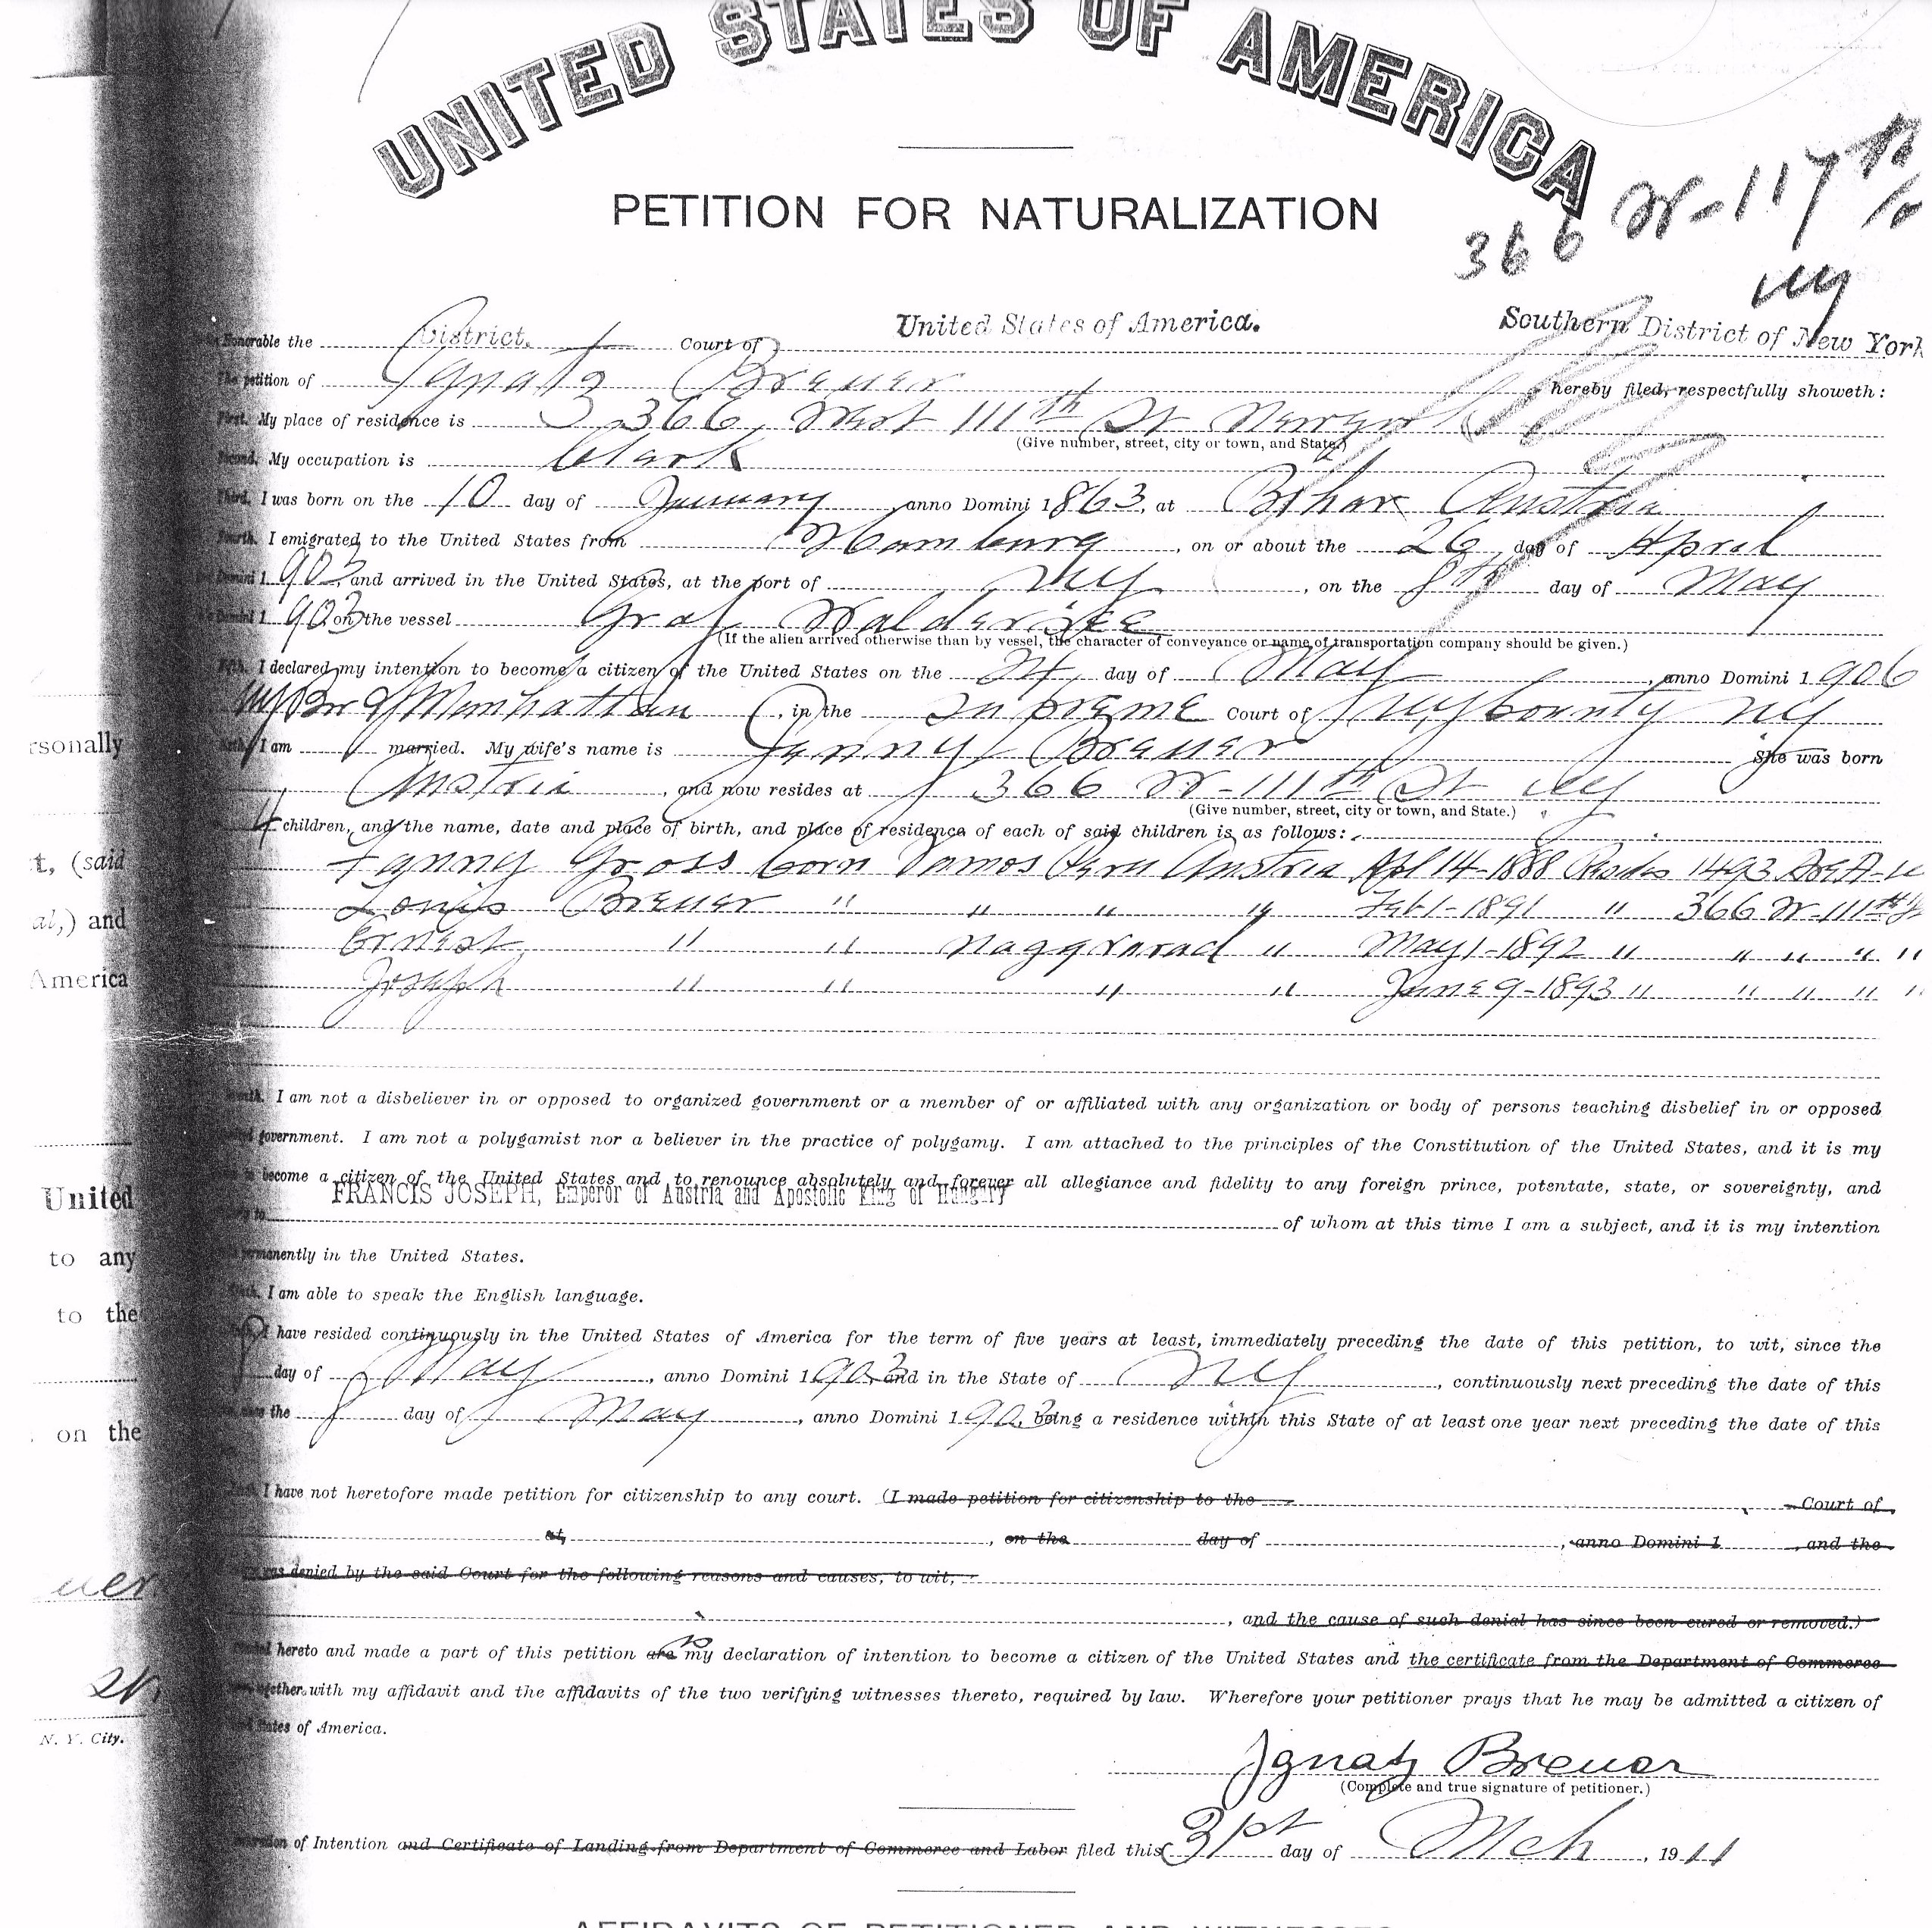 UNITED STATES OF AMERICA
W-117th
366
NY
PETITION FOR NATURALIZATION
Honorable the District Court of United States of America. Southern District of New York
The petition of Ignatz Breuer hereby filed, respectfully showeth:
First. My place of residence is 366 West 111th St New York
(Give number, street, city or town, and State.)
Second. My occupation is Clark
Third. I was born on the 10 day of January, anno Domini 1863, at Bihar Austria
Fourth. I emigrated to the United States from Hamburg, on or about the 26 day of April
Domini 1903 and arrived in the United States, at the port of NY, on the 8th day of May
Domini 1903 on the vessel Graf Waldersee
(If the alien arrived otherwise than by vessel, the character of conveyance or name of transportation company should be given.)
Fifth. I declared my intention to become a citizen of the United States on the 24 day of May, anno Domini 1906
Manhattan, in the Supreme Court of NY County NY
I am married. My wife's name is Fanny Breuer She was born
Austria, and now resides at 366 W-111th St NY
(Give number, street, city or town, and State.)
4 children, and the name, date and place of birth, and place of residence of each of said children is as follows:
Fanny Gross born Vamos Austria Apl 14-1888 Resides 1493
Louis Breuer " " " " Feb 1-1891 " 366 W-111th
Ernest " " Nagyvarad " May 1-1892 " " " " "
Joseph " " " " June 9-1893 " " " " "
I am not a disbeliever in or opposed to organized government or a member of or affiliated with any organization or body of persons teaching disbelief in or opposed
government. I am not a polygamist nor a believer in the practice of polygamy. I am attached to the principles of the Constitution of the United States, and it is my
become a citizen of the United States and to renounce absolutely and forever all allegiance and fidelity to any foreign prince, potentate, state, or sovereignty, and
FRANCIS JOSEPH, Emperor of Austria and Apostolic King of Hungary
of whom at this time I am a subject, and it is my intention
permanently in the United States.
I am able to speak the English language.
I have resided continuously in the United States of America for the term of five years at least, immediately preceding the date of this petition, to wit, since the
8 day of May, anno Domini 1903, and in the State of NY, continuously next preceding the date of this
the 8 day of May, anno Domini 1903, being a residence within this State of at least one year next preceding the date of this
I have not heretofore made petition for citizenship to any court. (I made petition for citizenship to the Court of
at, on the day of, anno Domini 1, and the
was denied by the said Court for the following reasons and causes, to wit,
, and the cause of such denial has since been cured or removed.)
hereto and made a part of this petition are my declaration of intention to become a citizen of the United States and the certificate from the Department of Commerce
together with my affidavit and the affidavits of the two verifying witnesses thereto, required by law. Wherefore your petitioner prays that he may be admitted a citizen of
States of America.
Ignatz Breuer
(Complete and true signature of petitioner.)
of Intention and Certificate of Landing from Department of Commerce and Labor filed this 31st day of Mch, 1911
AFFIDAVITS OF PETITIONER AND WITNESSES
rsonally
t, (said
al,) and
America
United
to any
to the
on the
uer
N. Y. City.